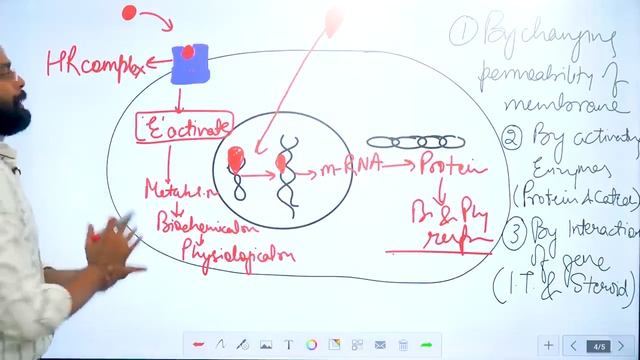 ① By changing
permeability of
membrane
② By activating
Enzymes
(Protein &
③ By Interaction
of gene
(I.T. & Steroid)
HR complex
'E' activate
Biochemical
Physiological
m-RNA
Protein
Bi & Phy
4/5